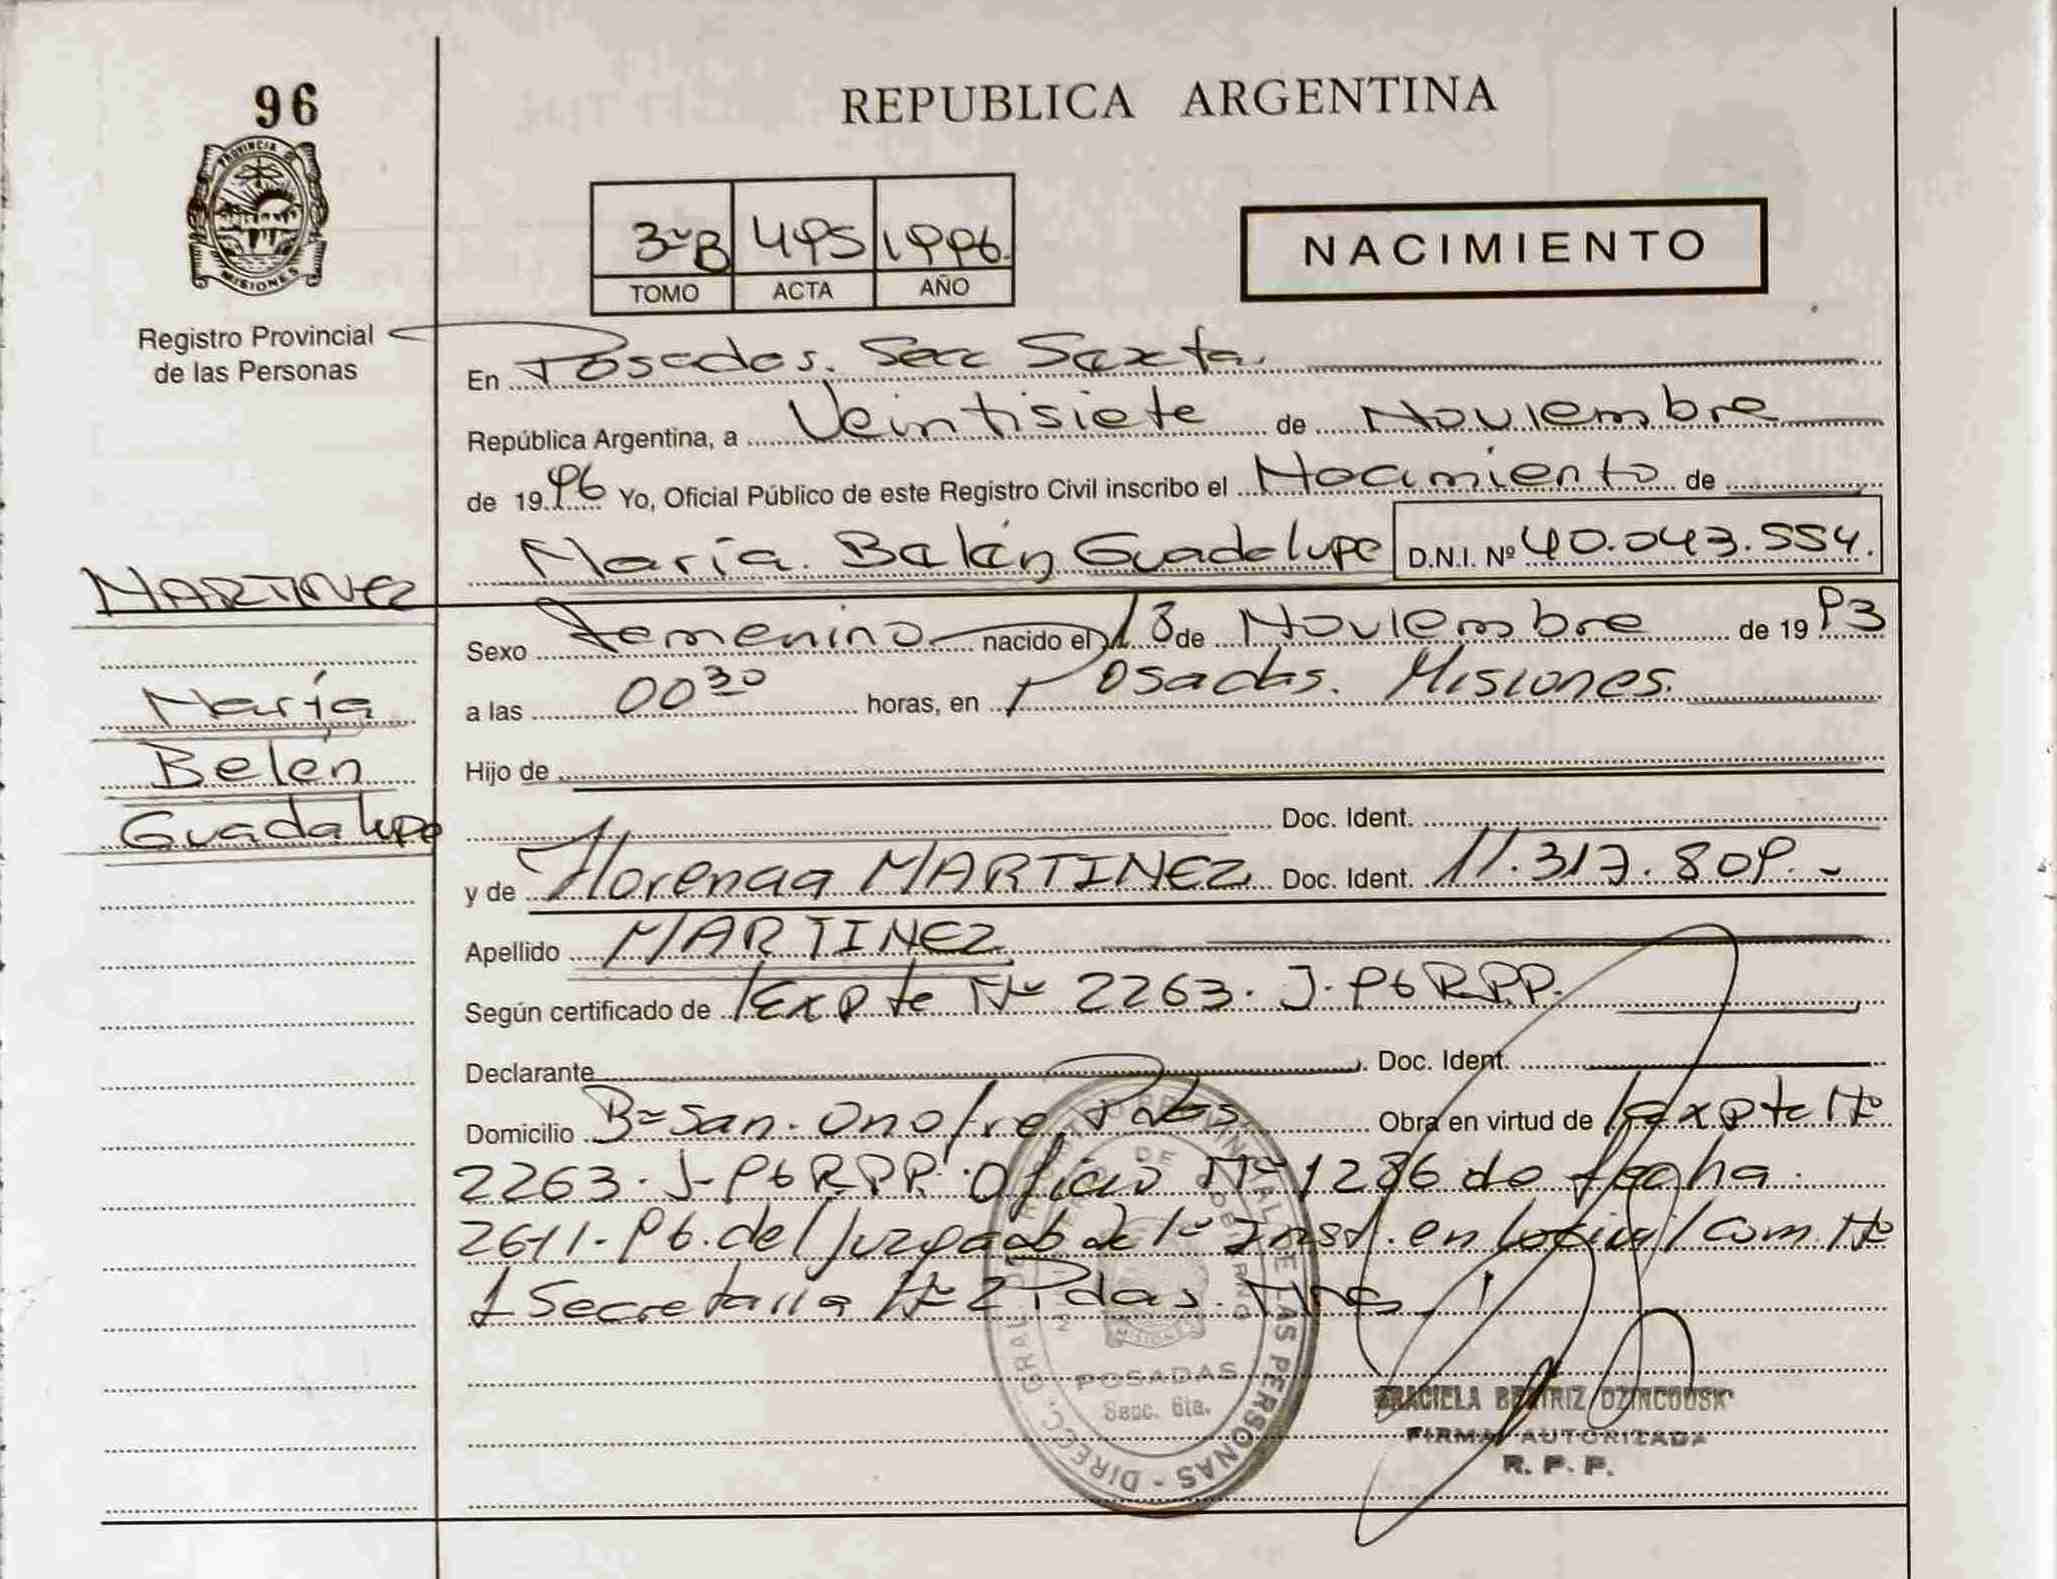 96
PROVINCIA DE
MISIONES
Registro Provincial
de las Personas
REPUBLICA ARGENTINA
3º B 495 1996.
TOMO ACTA AÑO
NACIMIENTO
En Posadas. Secc Sexta.
República Argentina, a Veintisiete de Noviembre
de 1996 Yo, Oficial Público de este Registro Civil inscribo el Nacimiento de
María Belén Guadalupe D.N.I. Nº 40.043.554.
MARTINEZ
María
Belén
Guadalupe
Sexo Femenino nacido el 18 de Noviembre de 1993
a las 00 30 horas, en Posadas. Misiones.
Hijo de
Doc. Ident.
y de Florencia MARTINEZ Doc. Ident. 11.317.809.-
Apellido MARTINEZ
Según certificado de Expte Nº 2263. J-96 R.P.P.
Declarante Doc. Ident.
Domicilio Bº San Onofre Pdas Obra en virtud de Expte Nº
2263. J-96 R.P.P. Oficio Nº 1286 de fecha
26-11-96. del Juzgado de 1º Inst. en lo Civil Com. Nº
1 Secretaria Nº 2 Pdas. Mnes
DIRECC. GRAL. DE LAS PERSONAS
MISIONES
POSADAS
Secc. 6ta.
GRACIELA BEATRIZ
FIRMA AUTORIZADA
R. P. P.